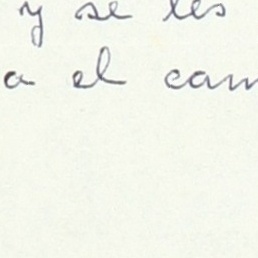 y se les
a el cam